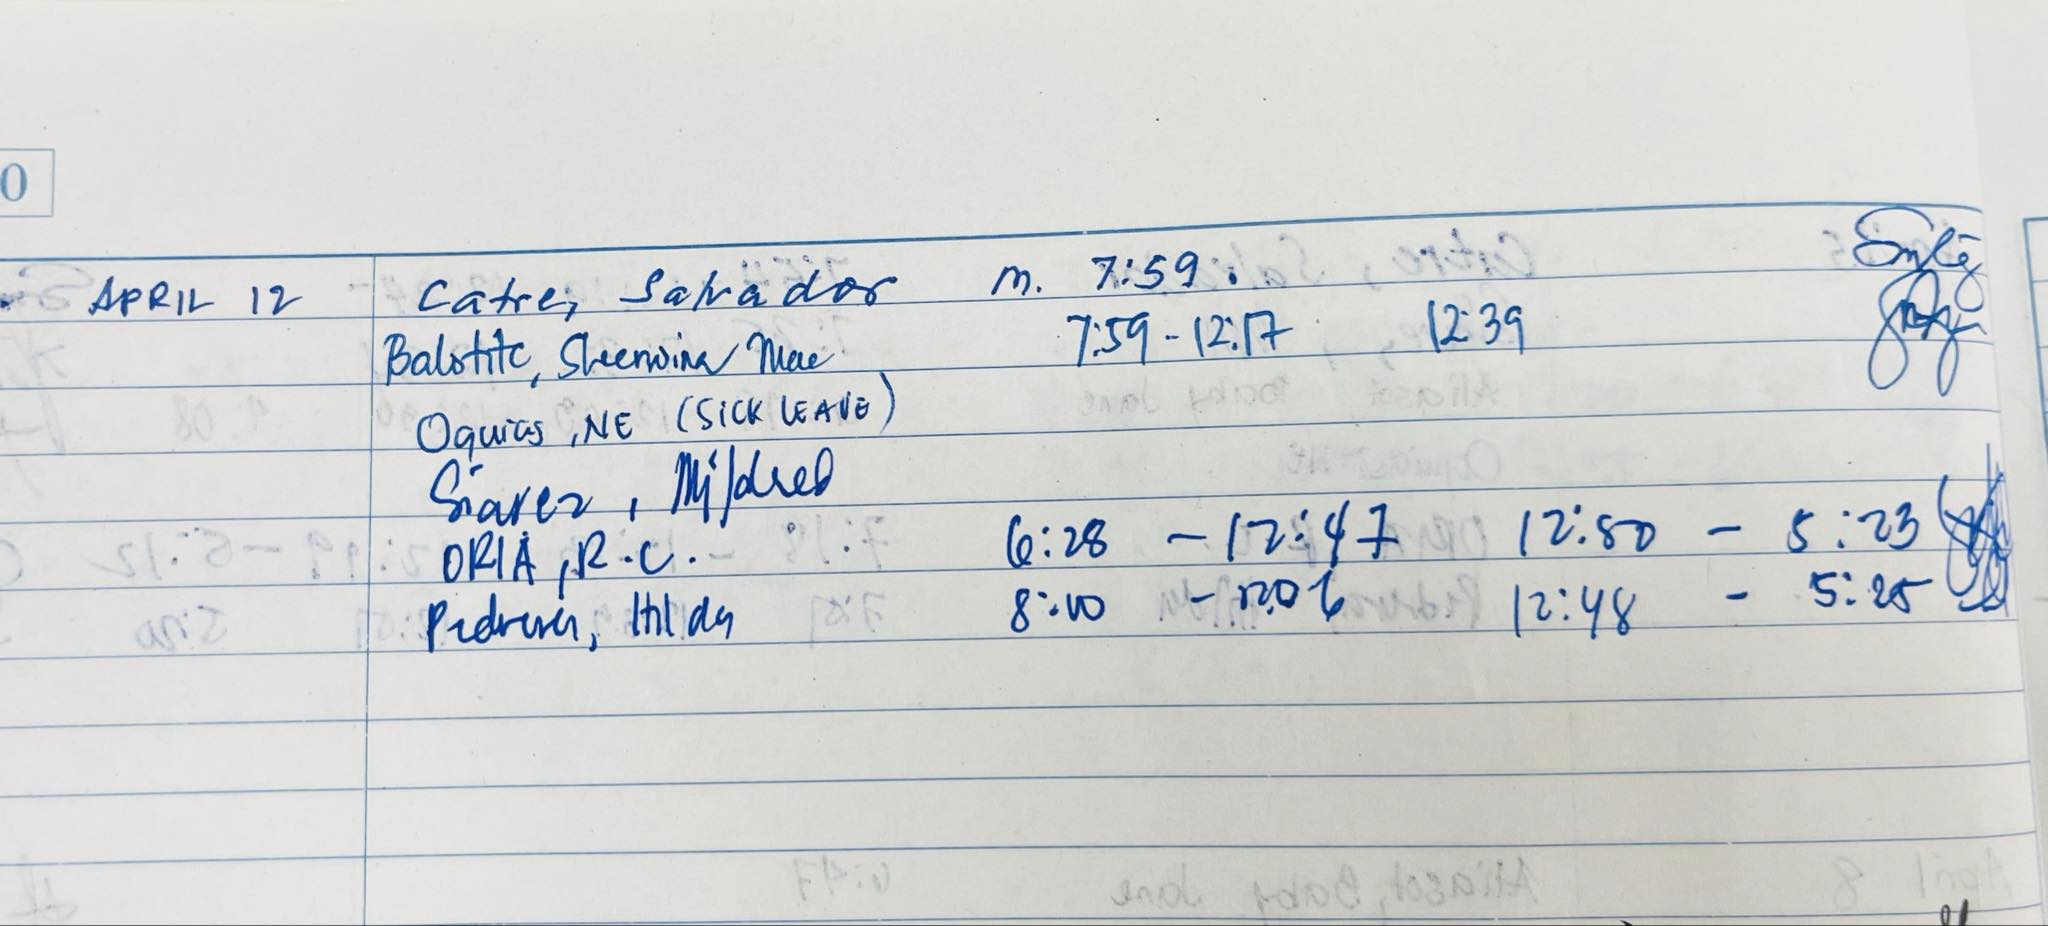 0
APRIL 12 Catre, Salvador M. 7:59
Balotitc, Sheenwina Mae 7:59 - 12:17 12:39
Oquias, NE (SICK LEAVE)
Siarez, Mildred
ORIA, R.C. 6:28 - 12:47 12:50 - 5:23
Hilda 8:00 - 12:06 12:48 - 5:25